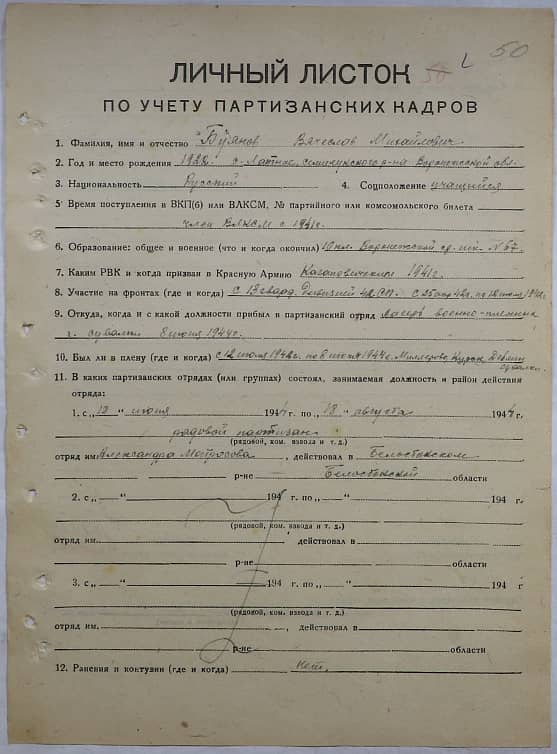 50 L 50
ЛИЧНЫЙ ЛИСТОК
ПО УЧЕТУ ПАРТИЗАНСКИХ КАДРОВ
1. Фамилия, имя и отчество Буянов Вячеслав Михайлович.
2. Год и место рождения с. Латное, семилукского р-на Воронежской обл.
3. Национальность Русский 4. Соцположение учащийся
5. Время поступления в ВКП(б) или ВЛКСМ, № партийного или комсомольского билета
член ВЛКСМ с 1941г.
6. Образование: общее и военное (что и когда окончил) 10 кл. Воронежской ср. шк. № 67.
7. Каким РВК и когда призван в Красную Армию Кагановическим 1941г.
8. Участие на фронтах (где и когда) с 13 гвард. Дивизией
9. Откуда, как и с какой должности прибыл в партизанский отряд лагерь военно-пленных
г. сувалки 8 июня 1944г.
10. Был ли в плену (где и когда) с 12 июля 1942г. по 8 июня 1944г. Миллерово Курск Демблин
сувалки.
11. В каких партизанских отрядах (или группах) состоял, занимаемая должность и район действия
отряда:
1. с „ 12 “ июня 1944 г. по „ 18 “ августа 1944 г.
рядовой партизан
(рядовой, ком. взвода и т. д.)
отряд им. Александра Матросова, действовал в Белостокском
р-не Белостокской области
2. с „ — “ 194 г. по „ — “ 194 г.
(рядовой, ком. взвода и т. д.)
отряд им. , действовал в
р-не области
3. с „ — “ 194 г. по „ — “ 194 г.
(рядовой, ком. взвода и т. д.)
отряд им. , действовал в
р-не области
12. Ранения и контузии (где и когда) нет.